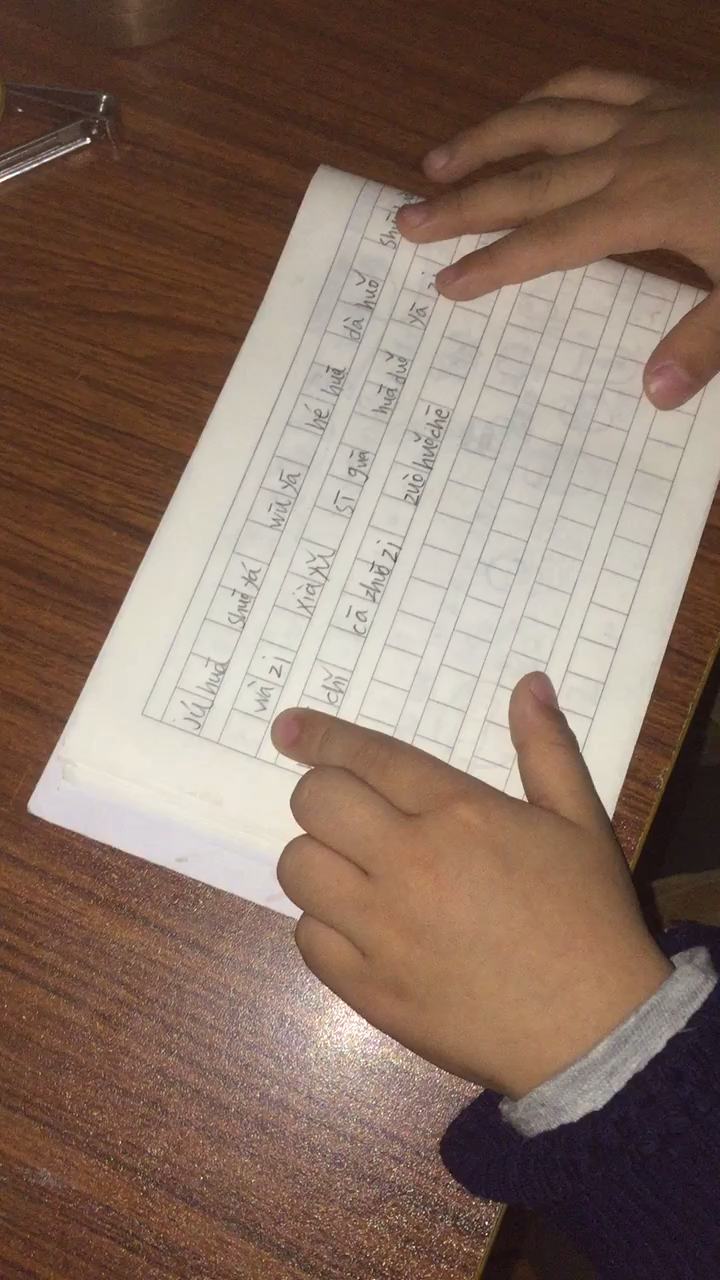 júhuā shuāyá wūyā hé huā dà huǒ
wà zi xià yǔ sī guā huā duǒ yā zi
chǐ cā zhuō zi zuò huǒ chē